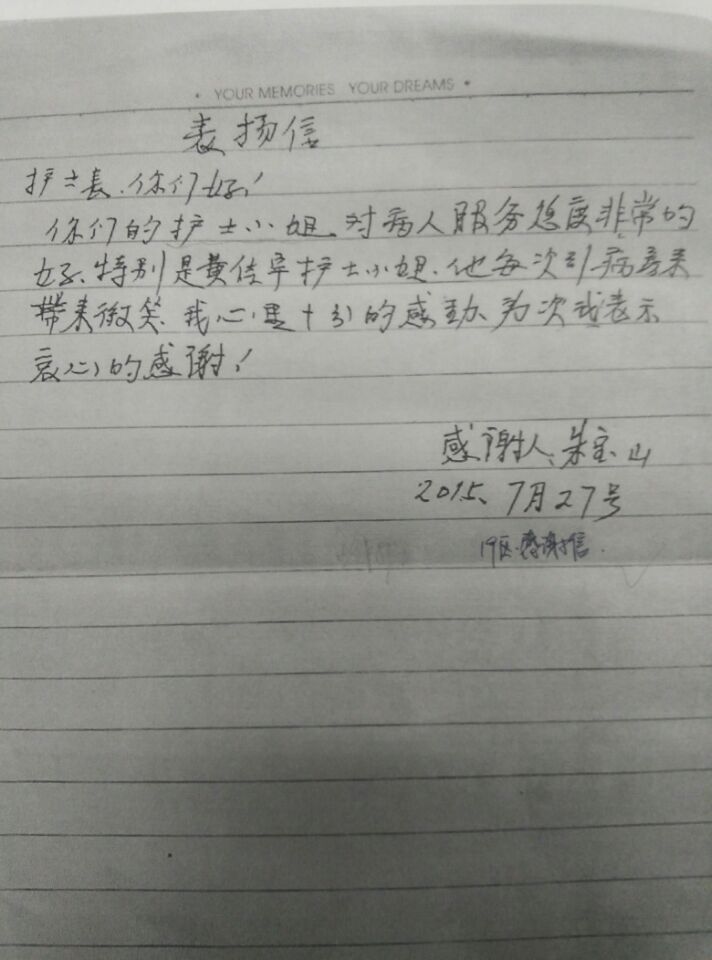 • YOUR MEMORIES YOUR DREAMS •
表扬信
护士长、你们好!
你们的护士小姐、对病人服务态度非常的
好、特别是黄佳 护士小姐、他每次到病房来
带来微笑、我心里十分的感动、为次我表示
衷心的感谢!
感谢人、朱宝山
2015、7月27号
19区·感谢信.